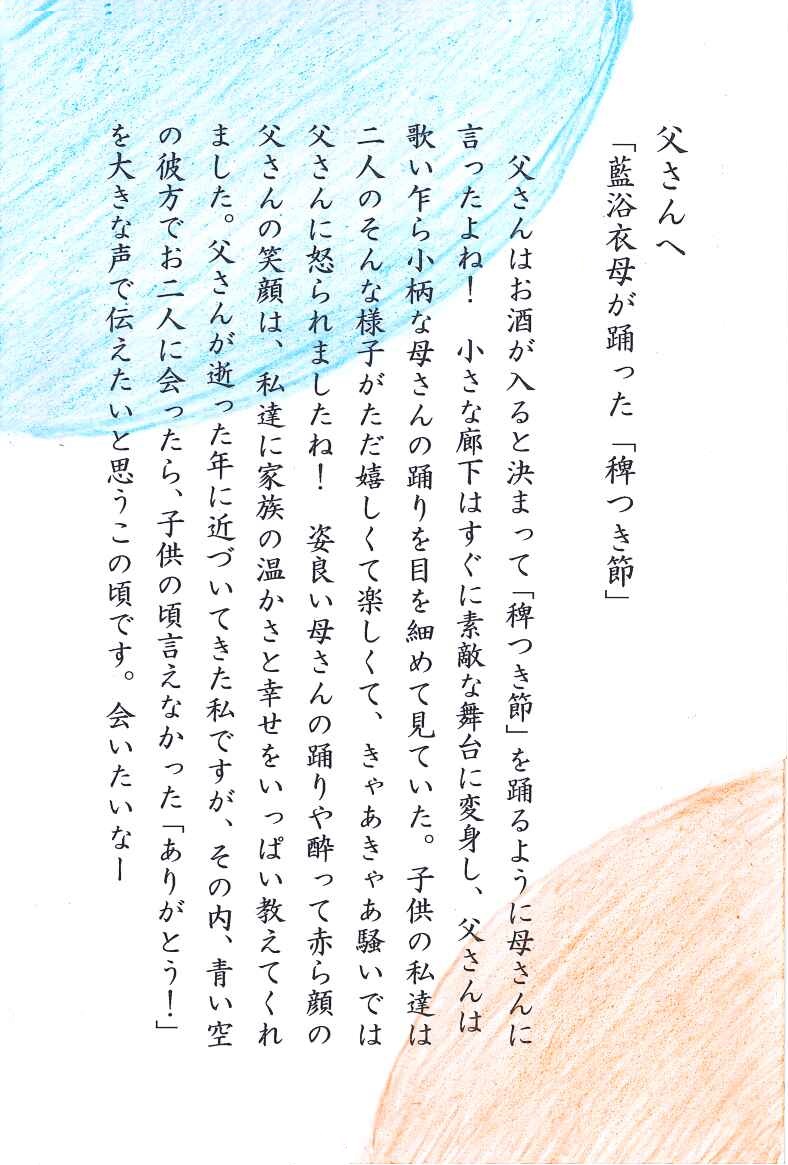 父さんへ
「藍浴衣母が踊った「稗つき節」
　父さんはお酒が入ると決まって「稗つき節」を踊るように母さんに
言ったよね！　小さな廊下はすぐに素敵な舞台に変身し、父さんは
歌い乍ら小柄な母さんの踊りを目を細めて見ていた。子供の私達は
二人のそんな様子がただ嬉しくて楽しくて、きゃあきゃあ騒いでは
父さんに怒られましたね！　姿良い母さんの踊りや酔って赤ら顔の
父さんの笑顔は、私達に家族の温かさと幸せをいっぱい教えてくれ
ました。父さんが逝った年に近づいてきた私ですが、その内、青い空
の彼方でお二人に会ったら、子供の頃言えなかった「ありがとう！」
を大きな声で伝えたいと思うこの頃です。会いたいなー